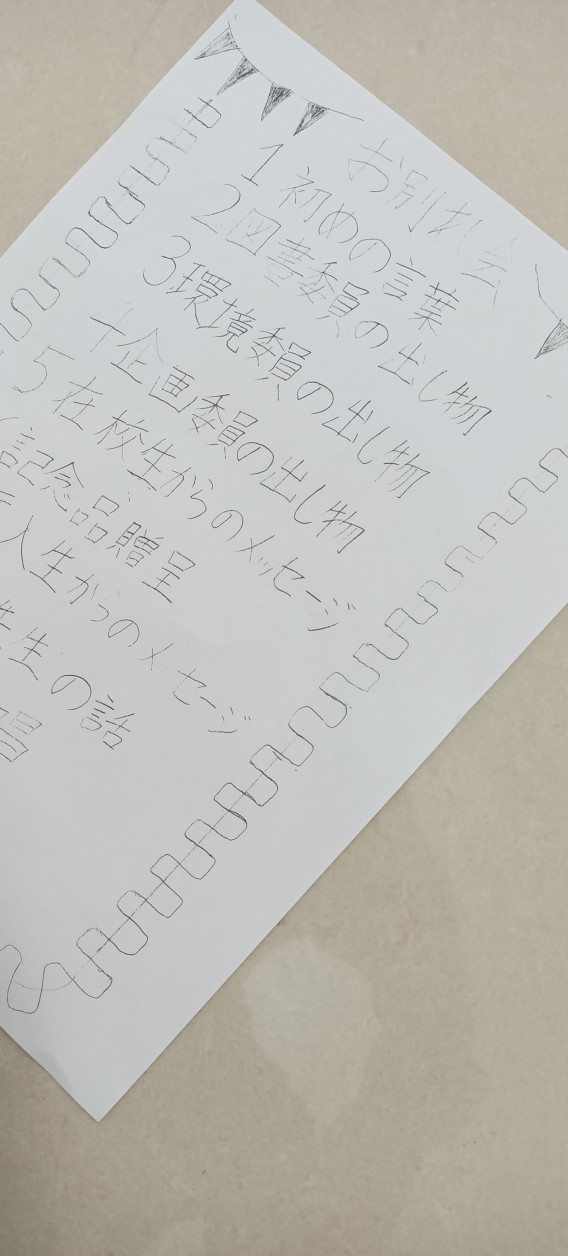 お別れ会
1 初めの言葉
2 図書委員の出し物
3 環境委員の出し物
4 企画委員の出し物
5 在校生からのメッセージ
記念品贈呈
人生からのメッセージ
先生の話